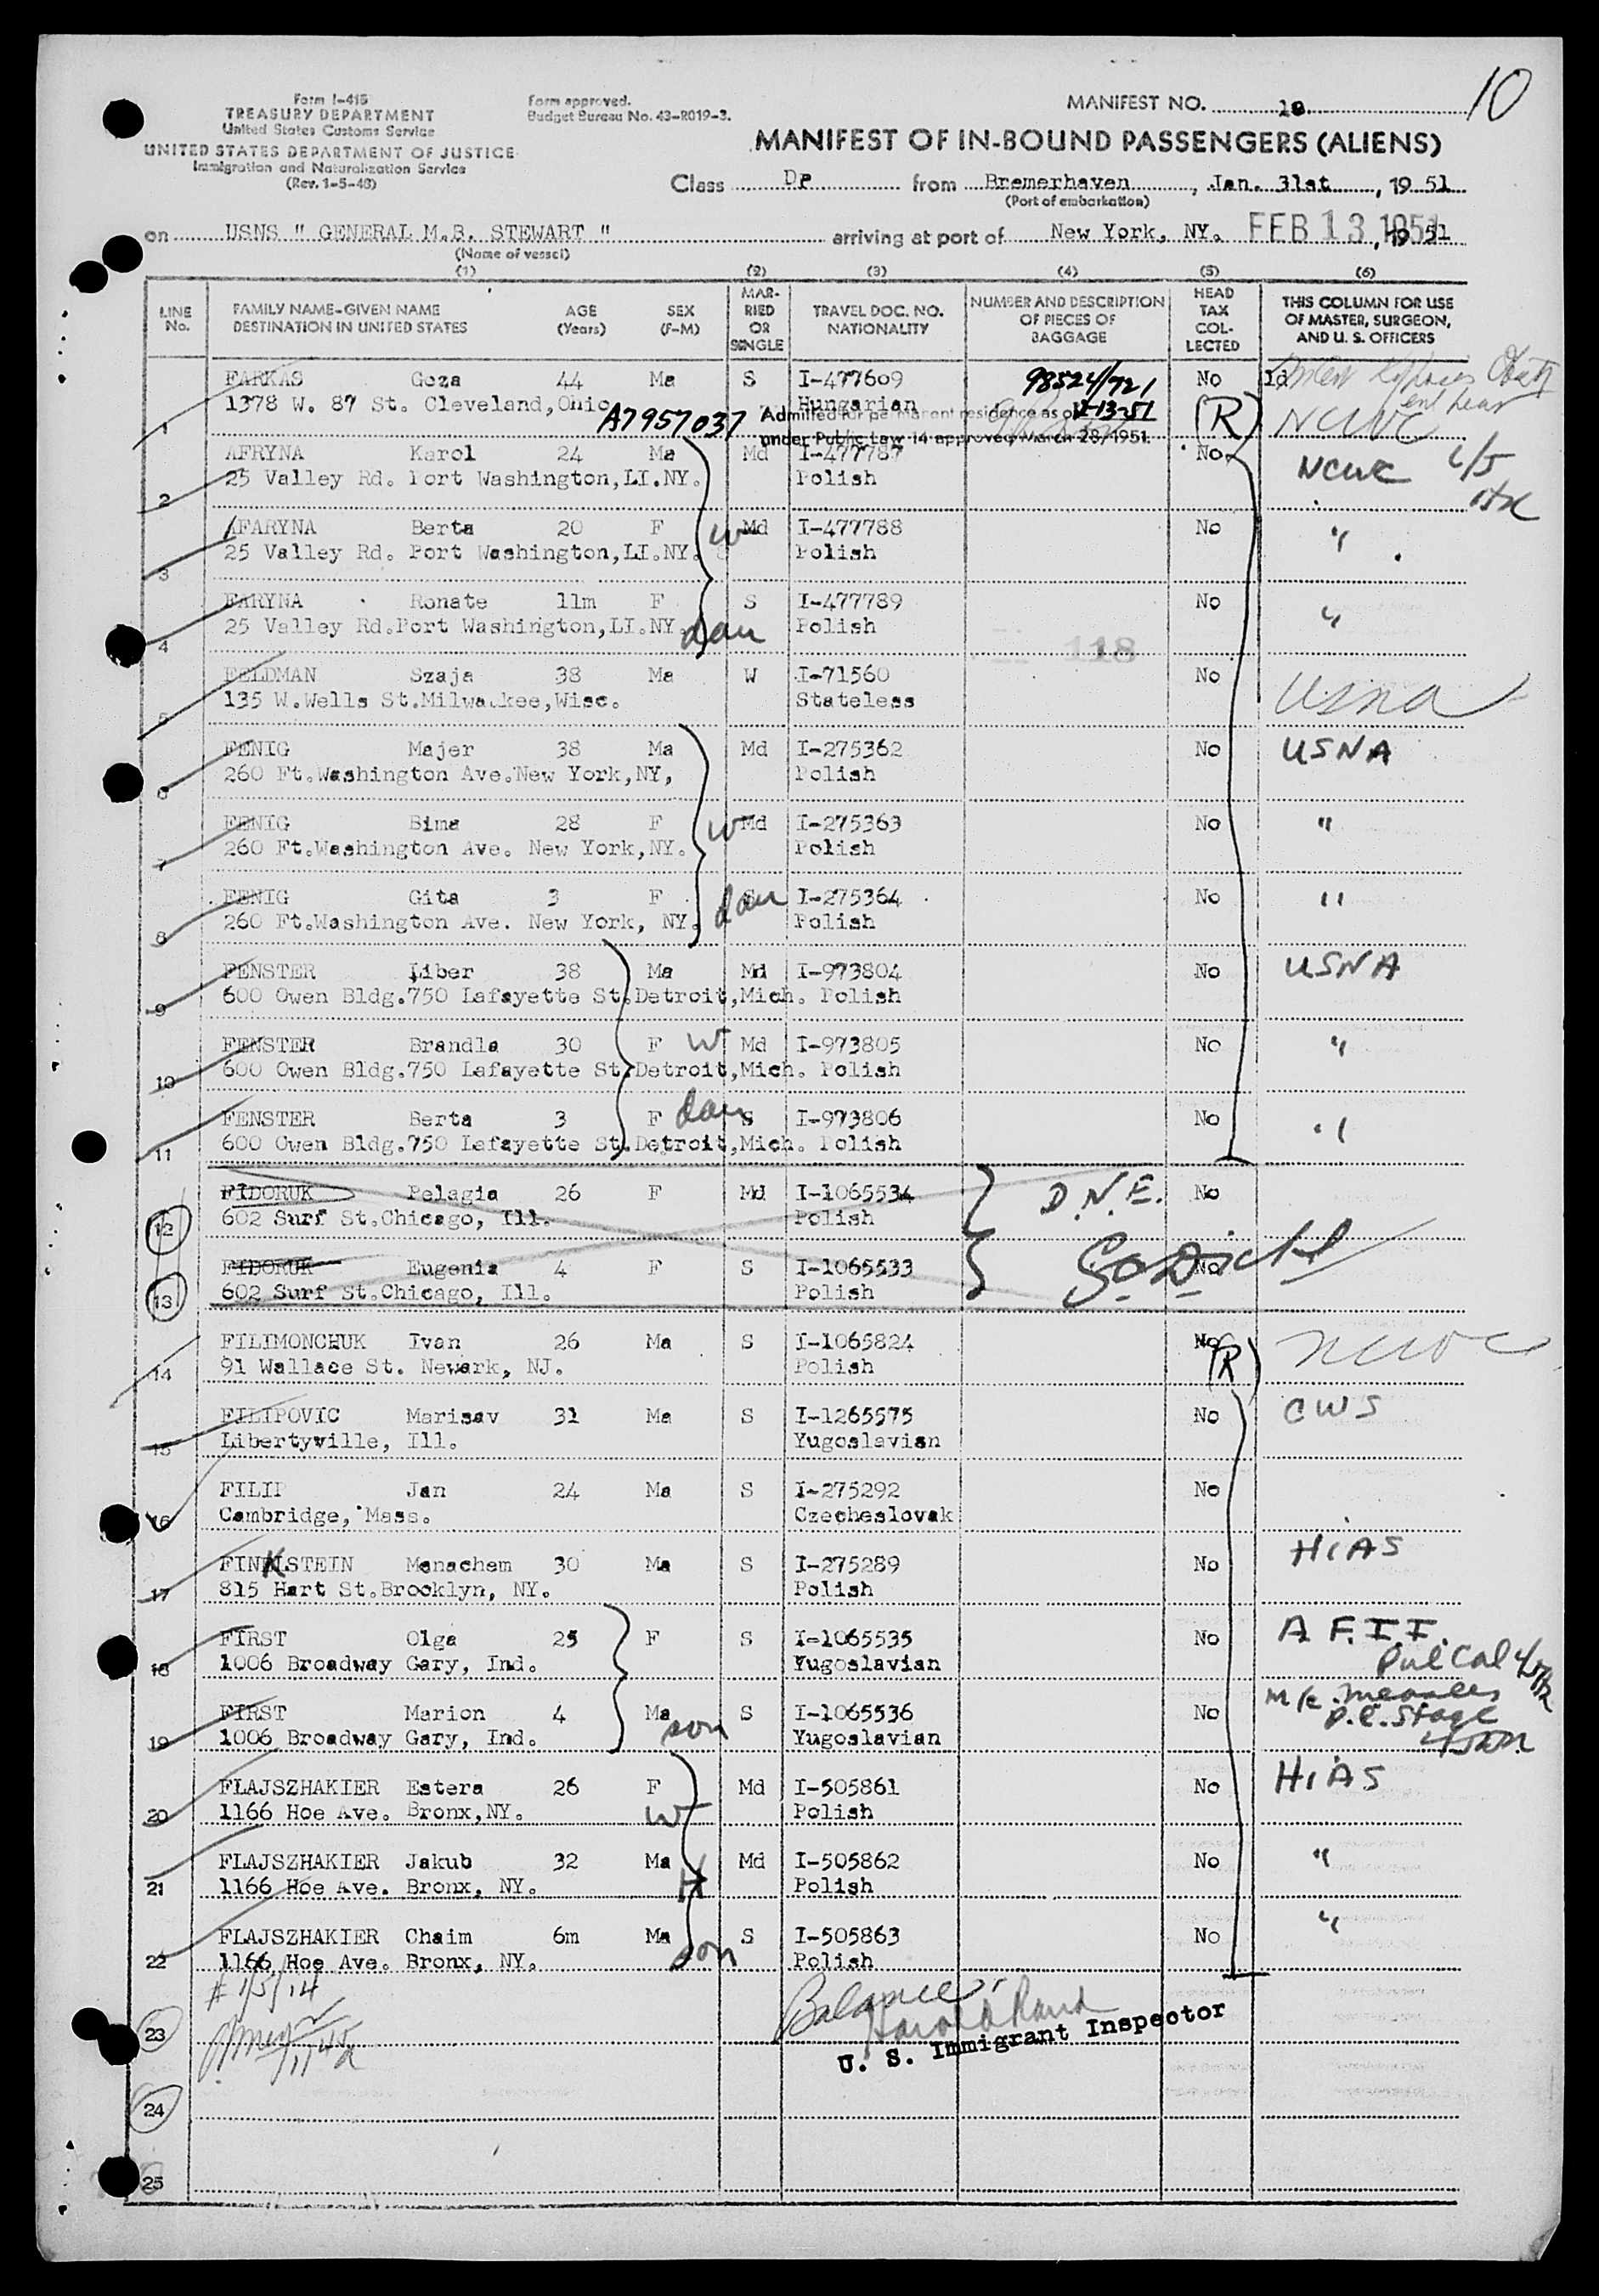 10
Form I-415
TREASURY DEPARTMENT
United States Customs Service
UNITED STATES DEPARTMENT OF JUSTICE
Immigration and Naturalization Service
(Rev. 1-5-48)
Form approved.
Budget Bureau No. 43-R019-3.
MANIFEST NO. 10
MANIFEST OF IN-BOUND PASSENGERS (ALIENS)
Class DP from Bremerhaven, Jan. 31st, 19 51
(Port of embarkation)
on USNS " GENERAL M.B. STEWART " arriving at port of New York, NY. FEB 13 1951, 19 51
(Name of vessel)
(1) (2) (3) (4) (5) (6)
LINE No. FAMILY NAME-GIVEN NAME DESTINATION IN UNITED STATES AGE (Years) SEX (F-M) MARRIED OR SINGLE TRAVEL DOC. NO. NATIONALITY NUMBER AND DESCRIPTION OF PIECES OF BAGGAGE HEAD TAX COLLECTED THIS COLUMN FOR USE OF MASTER, SURGEON, AND U. S. OFFICERS
FARKAS Geza 44 Ma S I-477609 98524/721 No
1378 W. 87 St. Cleveland, Ohio A7957037 Hungarian (R) NCWC
Admitted for permanent residence as of 2-13-51
under Public Law 14 approved March 28, 1951
1
AFRYNA Karol 24 Ma Md I-477787 No NCWC
2 25 Valley Rd. Port Washington,LI.NY. Polish
AFARYNA Berta 20 F W Md I-477788 No "
3 25 Valley Rd. Port Washington,LI.NY. Polish
FARYNA Ronate 11m F S I-477789 No "
4 25 Valley Rd.Port Washington,LI.NY. dau Polish 118
FELDMAN Szaja 38 Ma W I-71560 No USNA
5 135 W.Wells St.Milwaukee,Wisc. Stateless
FENIG Majer 38 Ma Md I-275362 No USNA
6 260 Ft.Washington Ave.New York,NY, Polish
FENIG Bima 28 F W Md I-275363 No "
7 260 Ft.Washington Ave. New York,NY. Polish
FENIG Gita 3 F dau S I-275364 No "
8 260 Ft.Washington Ave. New York, NY. Polish
FENSTER Liber 38 Ma Md I-973804 No USNA
9 600 Owen Bldg.750 Lafayette St.Detroit,Mich. Polish
FENSTER Brandla 30 F W Md I-973805 No "
10 600 Owen Bldg.750 Lafayette St.Detroit,Mich. Polish
FENSTER Berta 3 F dau S I-973806 No "
11 600 Owen Bldg.750 Lafayette St.Detroit,Mich. Polish
FIDORUK Pelagia 26 F Md I-1065534 D.N.E. No
12 602 Surf St.Chicago, Ill. Polish
FIDORUK Eugenia 4 F S I-1065533 No
13 602 Surf St.Chicago, Ill. Polish
FILIMONCHUK Ivan 26 Ma S I-1065824 No NCWC
14 91 Wallace St. Newark, NJ. Polish (R)
FILIPOVIC Marisav 31 Ma S I-1265575 No CWS
15 Libertyville, Ill. Yugoslavian
FILIP Jan 24 Ma S I-275292 No
16 Cambridge, Mass. Czecheslovak
FINKLSTEIN Menachem 30 Ma S I-275289 No HIAS
17 815 Hart St.Brooklyn, NY. Polish
FIRST Olga 25 F S I-1065535 No A F.I.I.
18 1006 Broadway Gary, Ind. Yugoslavian Pul Cal
FIRST Marion 4 Ma son S I-1065536 No measles
19 1006 Broadway Gary, Ind. Yugoslavian Stage
FLAJSZHAKIER Estera 26 F W Md I-505861 No HIAS
20 1166 Hoe Ave. Bronx,NY. Polish
FLAJSZHAKIER Jakub 32 Ma H Md I-505862 No "
21 1166 Hoe Ave. Bronx, NY. Polish
FLAJSZHAKIER Chaim 6m Ma son S I-505863 No "
22 1166 Hoe Ave. Bronx, NY. Polish
Balance
23 U. S. Immigrant Inspector
24
25